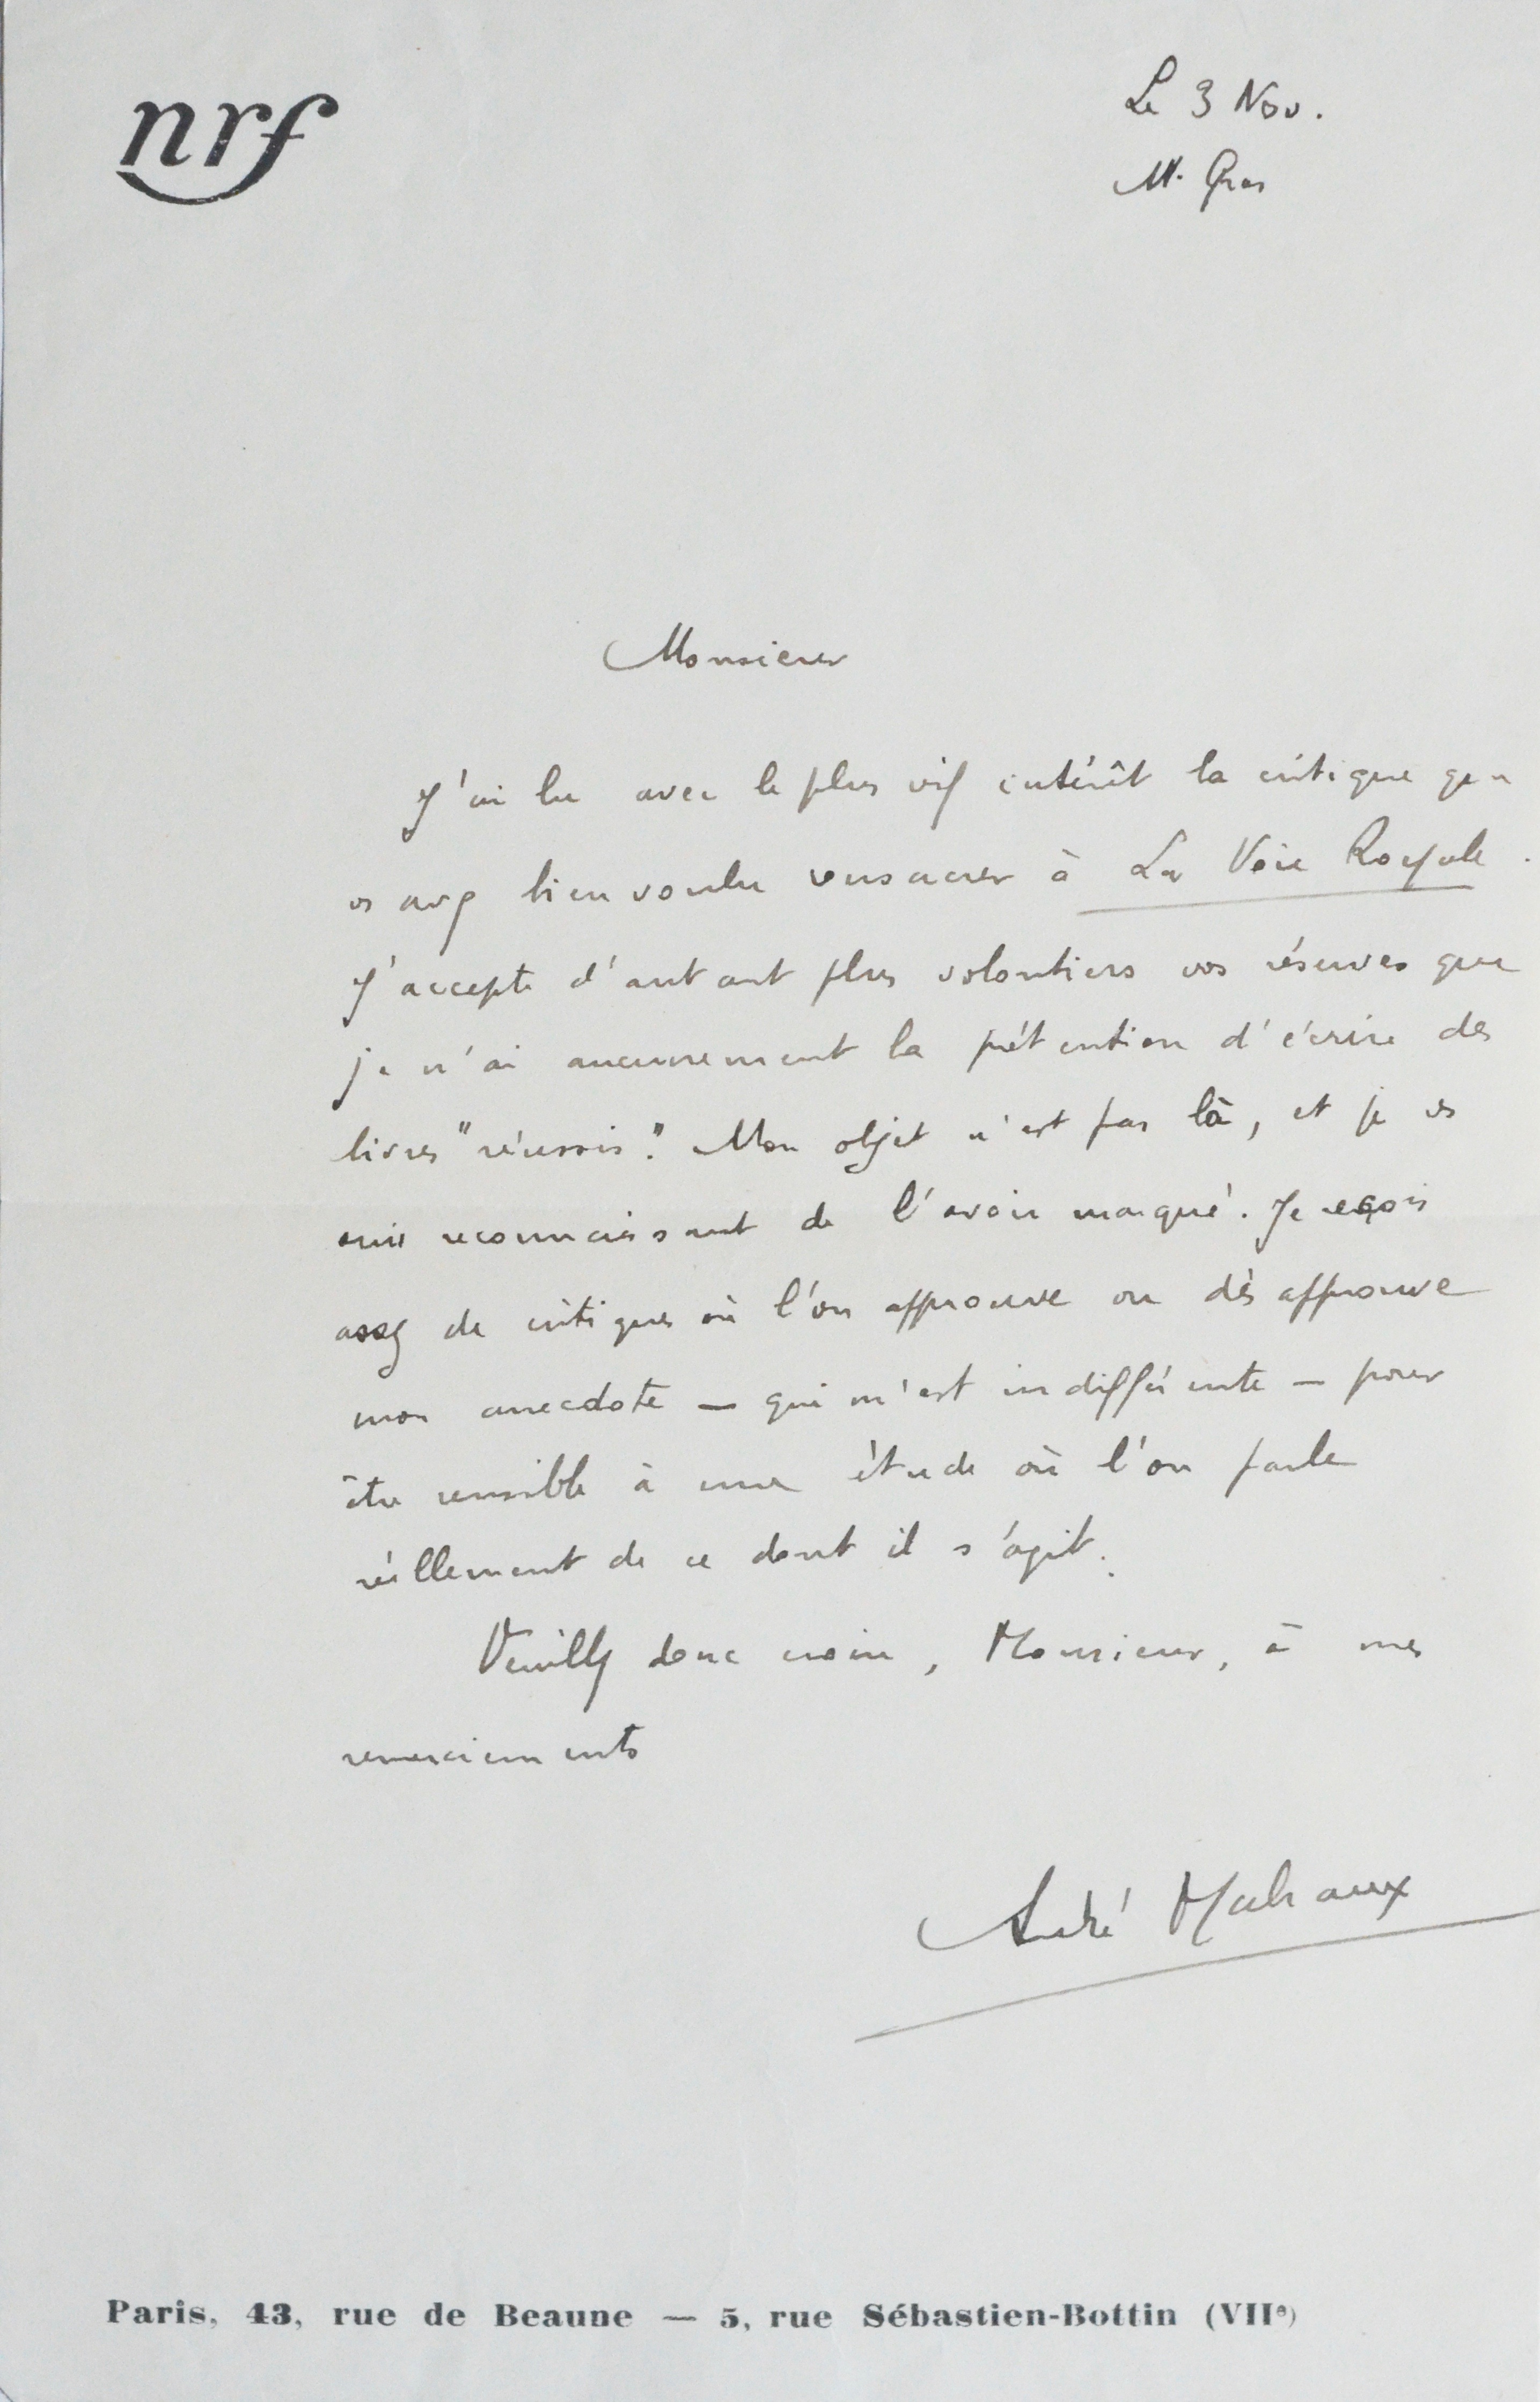 nrf
Le 3 Nov.
M. Gras
Monsieur
J'ai lu avec le plus vif intérêt la critique que
vs avez bien voulu consacrer à La Voie Royale.
J'accepte d'autant plus volontiers vos réserves que
je n'ai aucunement la prétention d'écrire des
livres "réussis". Mon objet n'est pas là, et je vs
suis reconnaissant de l'avoir marqué. Je reçois
assez de critiques où l'on approuve ou désapprouve
mon anecdote — qui m'est indifférente — pour
être sensible à une étude où l'on parle
réellement de ce dont il s'agit.
Veuillez donc croire, Monsieur, à mes
remerciements
André Malraux
Paris, 43, rue de Beaune — 5, rue Sébastien-Bottin (VIIe)